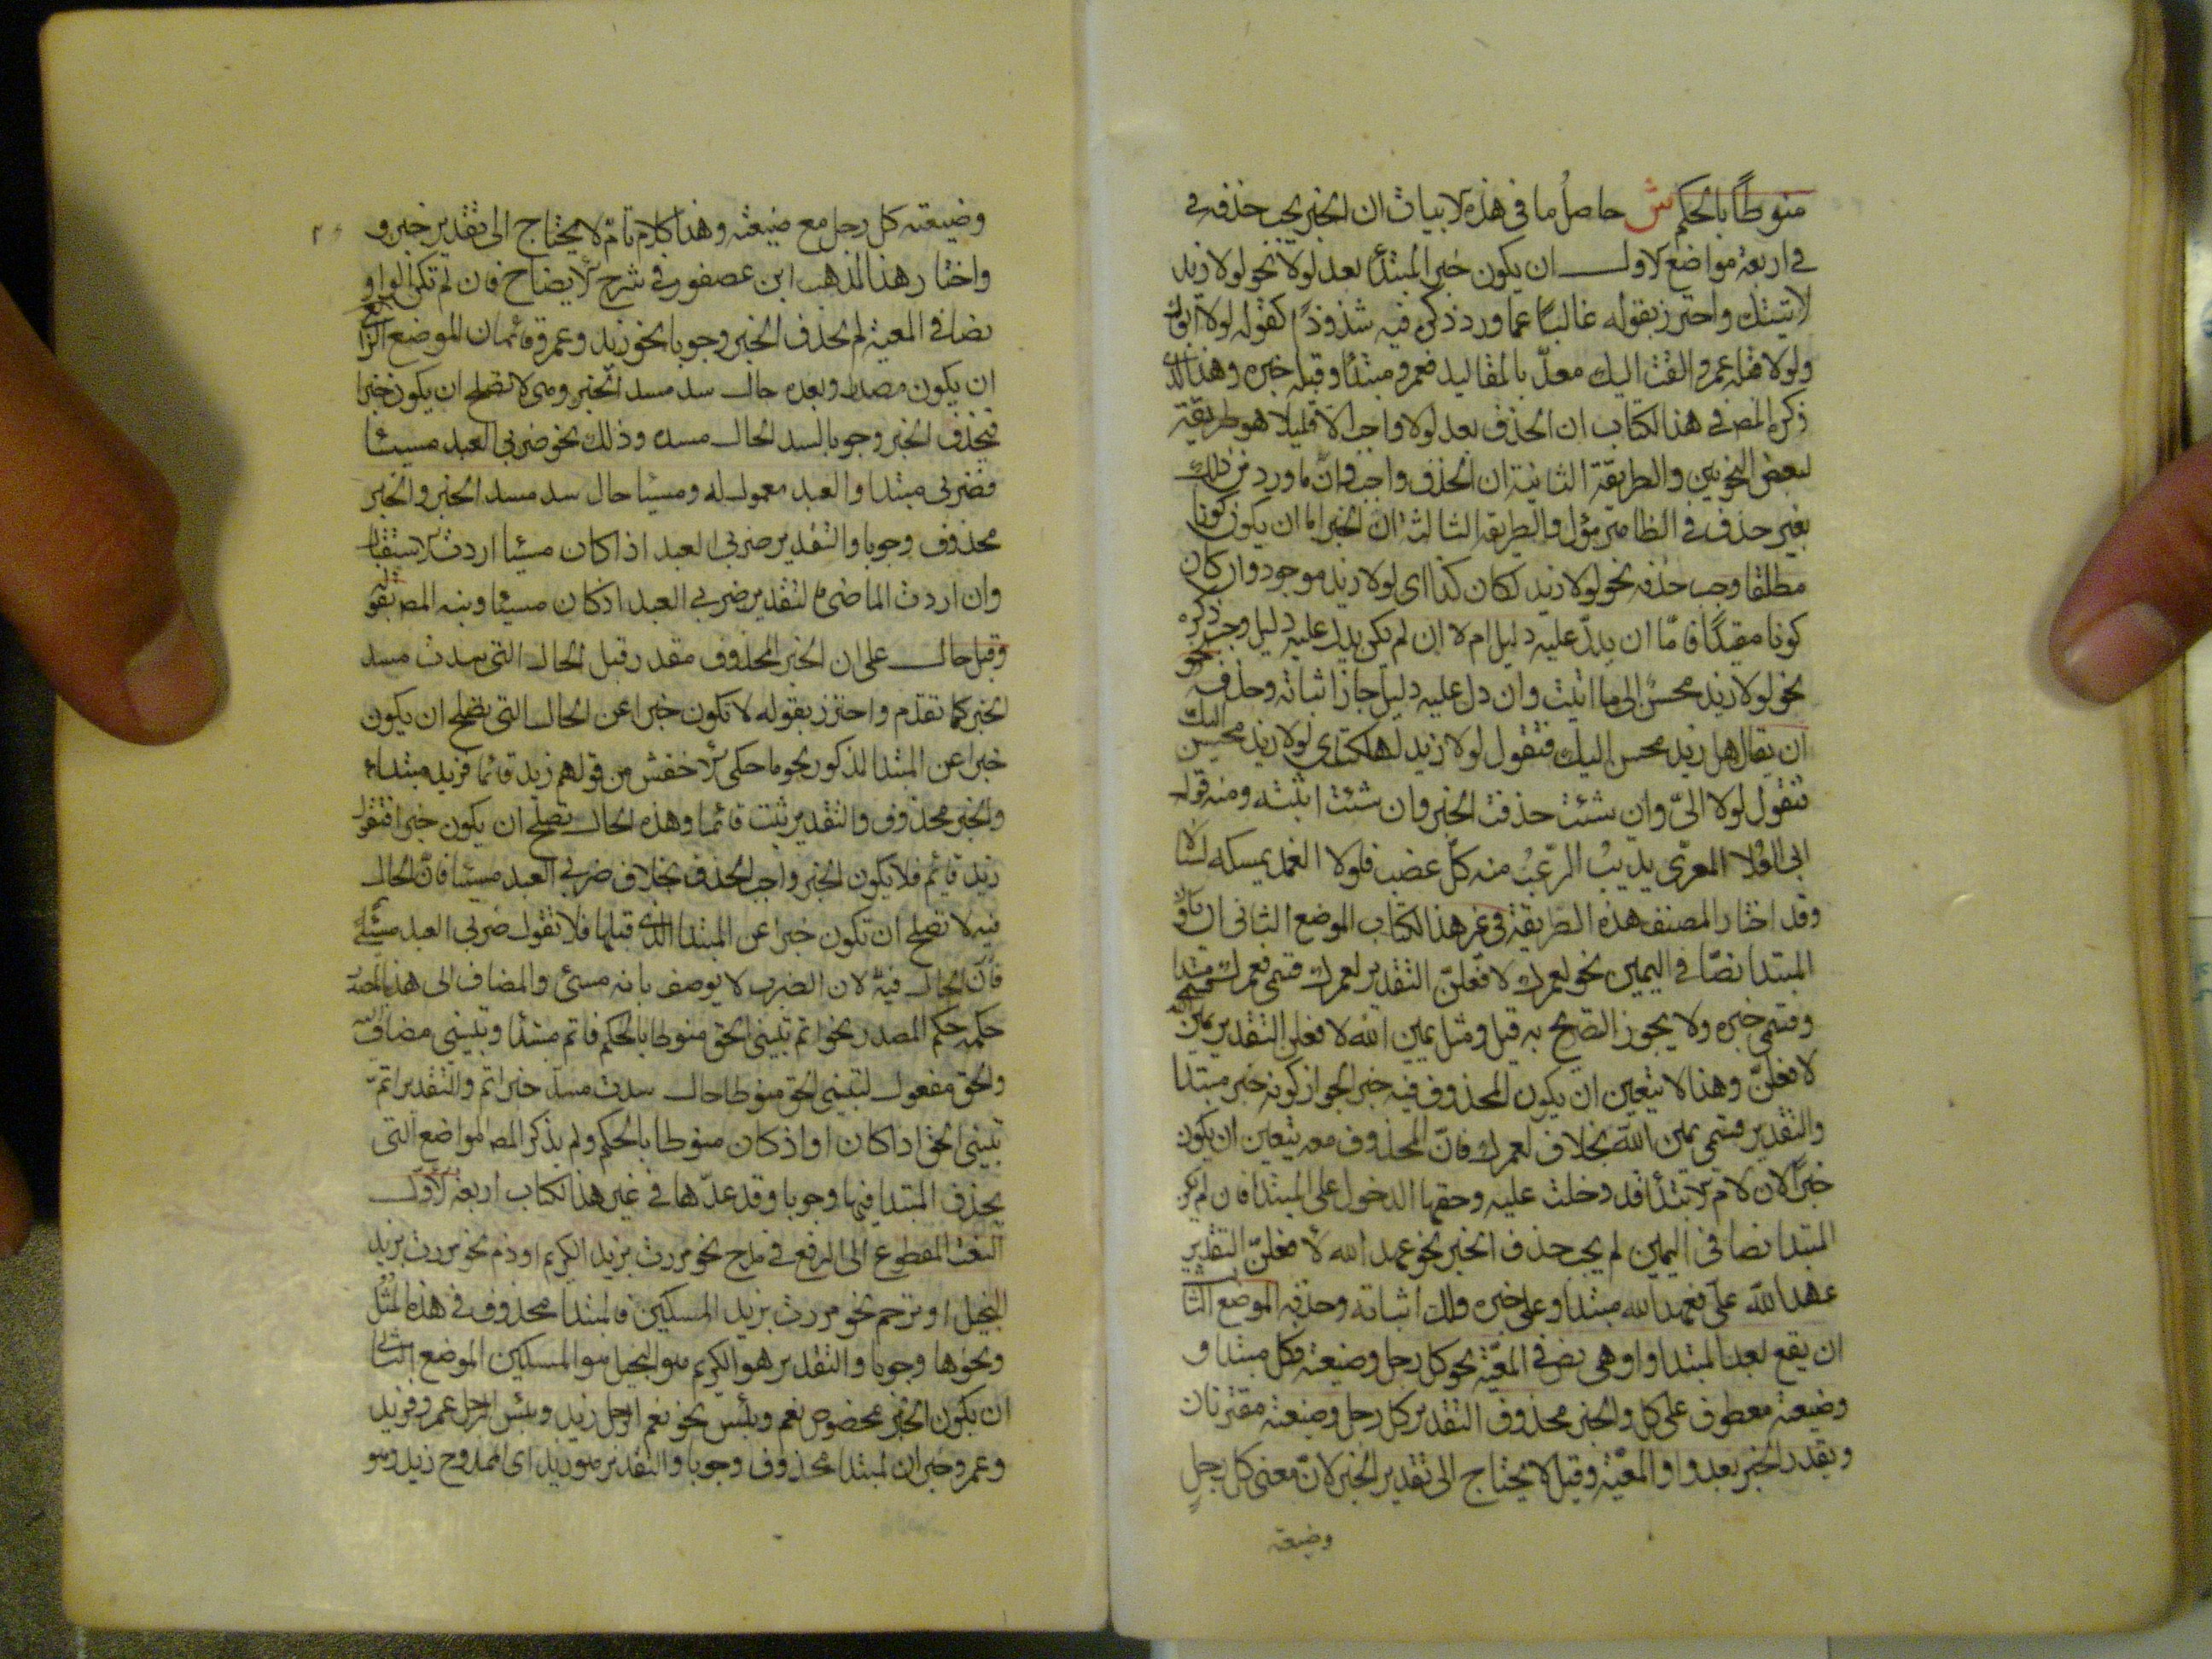 منوطًا بالحكم ش حاصل ما في هذه الابيات ان الخبر يجب حذفه في
في اربعة مواضع الاول ان يكون خبر المبتدأ بعد لولا نحو لولا زيد
لاتيتك واحترز بقوله غالبا عما ورد ذكره فيه شذوذا كقوله لولا ابوك
ولولا قبله عمرو القت اليك معدّ بالمقاليد فعمرو مبتدأ وقبله خبره وهذا الذي
ذكره المصـ في هذا الكتاب ان الحذف بعد لولا واجب الا قليلا هو طريقة
لبعض النحويين والطريقة الثانية ان الحذف واجب وانّ ما ورد من ذلك
بغير حذف في الظاهر مؤل والطريقة الثالثة ان الخبر اما ان يكون كونا
مطلقا وجب حذفه نحو لولا زيد لكان كذا اى لولا زيد موجود وان كان
كونا مقيدًا فامّا ان يدلّ عليه دليل ام لا ان لم يكن يدل عليه دليل وجب ذكره
نحو لولا زيد محسن الى ما اتيت وان دل عليه دليل جاز اثباته وحذفه نحو
ان يقال هل زيد محسن اليك فتقول لولا زيد لهلكت اى لولا زيد محسن اليك
فتقول لولا الىّ وان شئت حذفت الخبر وان شئت اثبته ومنه قول
ابى العلا المعرّى يذيب الرّعب منه كلّ عضب فلولا الغمد يمسكه لسالا
وقد اختار المصنف هذه الطريقة في غير هذا الكتاب الموضع الثانى ان يكون
المبتدا نصّا في اليمين نحو لعمرك لافعلنّ التقدير لعمرك قسمى فعمرك مبتدا
وقسمى خبره ولا يجوز التصريح به قيل ومثل يمين الله لافعلن التقدير يمين الله
لافعلنّ وهذا لا يتعين ان يكون المحذوف فيه خبر الجواز كونه خبر مبتدا
والتقدير قسمى يمين الله بخلاف لعمرك فانّ المحذوف معه يتعين ان يكون
خبرًا لان لام الابتدأ قد دخلت عليه وحقها الدخول على المبتدا فان لم يكن
المبتدا نصا في اليمين لم يجب حذف الخبر نحو عهد الله لافعلنّ التقدير
عهد الله علىّ فعهد الله مبتدا وعلى خبره ولك اثباته وحذفه الموضع الثالث
ان يقع بعد المبتدا واو هى نص في المعيّة نحو كل رجل وضيعته فكل مبتدا و
وضيعته معطوف على كل والخبر محذوف التقدير كل رجل وضيعته مقترنان
ويقدر الخبر بعد واو المعيّة وقيل لا يحتاج الى تقدير الخبر لانّ معنى كل رجل
وضيعته
وضيعته كل رجل مع ضيعته وهذا كلام تامّ لا يحتاج الى تقدير خبر و
واختار هذا المذهب ابن عصفور في شرح الايضاح فان لم تكن الواو
نصا في المعية لم يحذف الخبر وجوبا نحو زيد وعمرو قائمان الموضع الرابع
ان يكون مصدرا وبعده حال سد مسد الخبر وهى لا تصلح ان يكون خبرا
فيحذف الخبر وجوبا لسد الحال مسده وذلك نحو ضربى العبد مسيئا
فضربى مبتدا والعبد معمول له ومسيئا حال سد مسد الخبر والخبر
محذوف وجوبا والتقدير ضربى العبد اذا كان مسيئا اردت الاستقبال
وان اردت الماضى فالتقدير ضربى العبد اذ كان مسيئا ونبه المصـ بقوله
وقبل حال على ان الخبر المحذوف مقدر قبل الحال التى سدت مسد
الخبر كما تقدّم واحترز بقوله لا تكون خبرا عن الحال التى تصلح ان يكون
خبرا عن المبتدا المذكور نحو ما حكى الاخفش من قولهم زيد قائما فزيد مبتداء
والخبر محذوف والتقدير ثبت قائما وهذه الحال تصلح ان يكون خبرا فتقول
زيد قائم فلا يكون الخبر واجب الحذف بخلاف ضربى العبد مسيئا فانّ الحال
فيه لا تصلح ان تكون خبرا عن المبتدا الذى قبلها فلا تقول ضربى العبد مسئ
فانّ الحال فيه لان الضرب لا يوصف بانه مسئ والمضاف الى هذا المصدر
حكمه حكم المصدر نحو اتم تبيينى الحق منوطا بالحكم فاتم مبتدأ وتبيينى مضاف اليه
والحق مفعول لتبيينى الحق منوطا حال سدت مسدّ خبر اتم والتقدير اتمّ
تبيينى الحق اذا كان او اذ كان منوطا بالحكم ولم يذكر المصـ المواضع التى
يحذف المبتدا فيها وجوبا وقد عدّها في غير هذا الكتاب اربعة الاول
النعت المقطوع الى الرفع في مدح نحو مررت بزيد الكريم او ذم نحو مررت بزيد
البخيل او ترحم نحو مررت بزيد المسكين فالمبتدا محذوف في هذه المثل
ونحوها وجوبا والتقدير هو الكريم هو البخيل هو المسكين الموضع الثانى
ان يكون الخبر مخصوص نعم وبئس نحو نعم الرجل زيد وبئس الرجل عمرو فزيد
وعمرو خبران لمبتدا محذوف وجوبا والتقدير هو زيد اى الممدوح زيد وهو